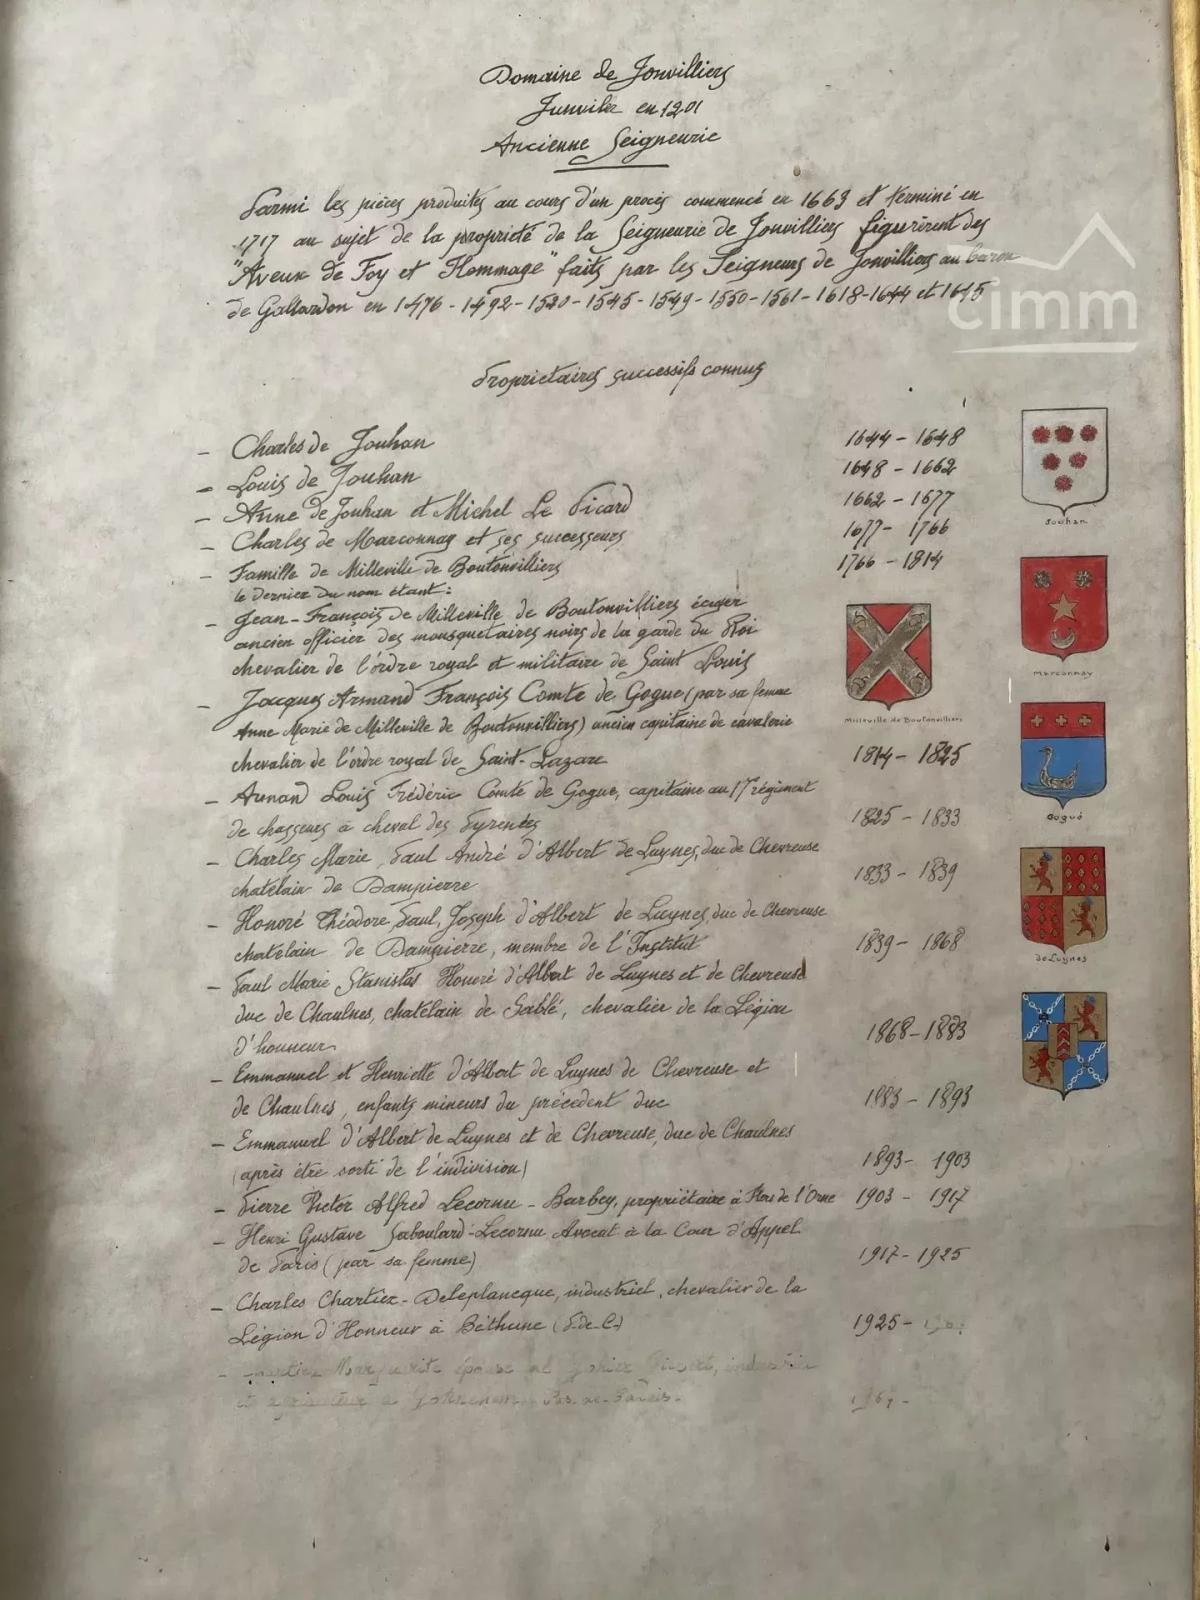 Domaine de Jonvilliers
Junviler en 1201
Ancienne Seigneurie
Parmi les pièces produites au cours d'un procès commencé en 1663 et terminé en
1717 au sujet de la propriété de la Seigneurie de Jonvilliers figurèrent des
"Aveux de Foy et Hommage" faits par les Seigneurs de Jonvilliers au baron
de Gallardon en 1476 - 1492 - 1520 - 1545 - 1549 - 1550 - 1561 - 1618 - 1644 et 1645
cimm
Propriétaires successifs connus
- Charles de Jouhan 1644 - 1648
- Louis de Jouhan 1648 - 1662
- Anne de Jouhan et Michel Le Picard 1662 - 1677
- Charles de Marconnay et ses successeurs 1677 - 1766
- Famille de Milleville de Boutonvilliers 1766 - 1814
le dernier du nom étant :
- Jean-François de Milleville de Boutonvilliers écuyer
ancien officier des mousquetaires noirs de la garde du Roi
chevalier de l'ordre royal et militaire de Saint Louis
- Jacques Armand François Comte de Gogue (par sa femme
Anne Marie de Milleville de Boutonvilliers) ancien capitaine de cavalerie
chevalier de l'ordre royal de Saint-Lazare 1814 - 1825
- Armand Louis Frédéric Comte de Gogue, capitaine au 17 régiment
de chasseurs à cheval des Pyrénées 1825 - 1833
- Charles Marie, Paul André d'Albert de Luynes, duc de Chevreuse
chatelain de Dampierre 1833 - 1839
- Honoré Théodore, Paul, Joseph d'Albert de Luynes, duc de Chevreuse
chatelain de Dampierre, membre de l'Institut 1839 - 1868
- Paul Marie Stanislas Honoré d'Albert de Luynes et de Chevreuse
duc de Chaulnes, chatelain de Sablé, chevalier de la Légion
d'honneur 1868 - 1883
- Emmanuel et Henriette d'Albert de Luynes de Chevreuse et
de Chaulnes, enfants mineurs du précédent duc 1883 - 1893
- Emmanuel d'Albert de Luynes et de Chevreuse, duc de Chaulnes
(après être sorti de l'indivision) 1893 - 1903
- Pierre Victor Alfred Lecornu - Barbey, propriétaire à Flers de l'Orne 1903 - 1917
- Henri Gustave Saboulard-Lecornu Avocat à la Cour d'Appel
de Paris (par sa femme) 1917 - 1925
- Charles Chartiez - Deleplancque, industriel, chevalier de la
Légion d'Honneur à Béthune (P.-de-C.) 1925 -
- Marguerite épouse
et à Pas-de-Calais.
Jouhan
Marconnay
Milleville de Boutonvilliers
Gogué
de Luynes